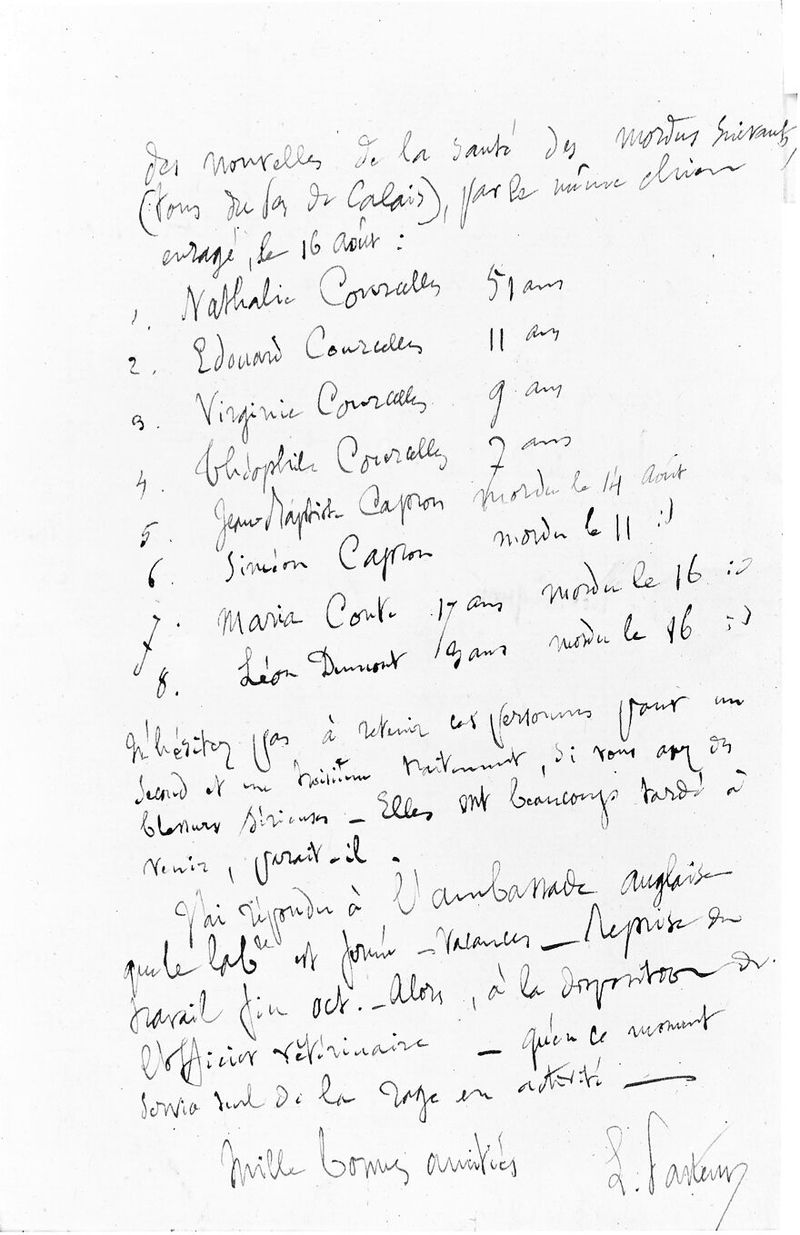 des nouvelles de la santé des mordus suivants,
(tous du Pas de Calais), par le même chien
enragé, le 16 août :
1. Nathalie Courcelles 51 ans
2. Edouard Courcelles 11 ans
3. Virginie Courcelles 9 ans
4. Théophile Courcelles 7 ans
5. Jean-Baptiste Capron mordu le 14 août
6. Siméon Capron mordu le 11 :)
7. Maria Conte 17 ans mordu le 16 :)
8. Léon Dumont 3 ans mordu le 16 :)
N'hésitez pas à retenir ces personnes pour un
second et un troisième traitement, si vous avez des
blessures sérieuses – Elles ont beaucoup tardé à
venir, paraît-il.
J'ai répondu à l'ambassade anglaise
que le lab^re est fermé – vacances – Reprise du
travail fin oct. – Alors, à la disposition de
l'officier vétérinaire – qu'en ce moment
service seul de la rage en activité —
Mille bonnes amitiés L. Pasteur